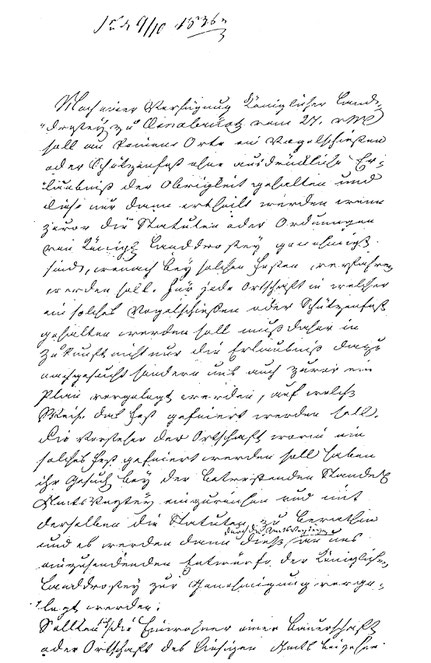 9/10 1836
Nach einer Verfügung Königlicher Land-
drostey zu Osnabrück vom 27. v. M.
soll an keinem Orte ein Vogelschießen
oder Schützenfest ohne ausdrückliche Er-
laubniß der Obrigkeit gehalten und
diese nur dann ertheilt werden wenn
zuvor die Statuten oder Ordnungen
von Königl. Landdrostey genehmigt
sind, wonach bey solchen Festen verfahren
werden soll. Für jede Ortschaft in welcher
ein solches Vogelschießen oder Schützenfest
gehalten werden soll muß daher in
Zukunft nicht nur die Erlaubniß dazu
nachgesucht sondern uns auch zuvor ein
Plan vorgelegt werden, auf welche
Weise das Fest gefeiert werden soll.
Die Vorsteher der Ortschaft worin ein
solches Fest gefeiert werden soll haben
ihr Gesuch bey der betreffenden
Amtsvogtey einzureichen und mit
derselben die Statuten zu berathen
durch die Amtsvogtey
und es werden dann diese an uns
einzusendenden Entwürfe der Königlichen
Landdrostey zur Genehmigung vorge-
legt werden.
Sollten die Einwohner einer Bauerschaft
oder Ortschaft des hiesigen Amts